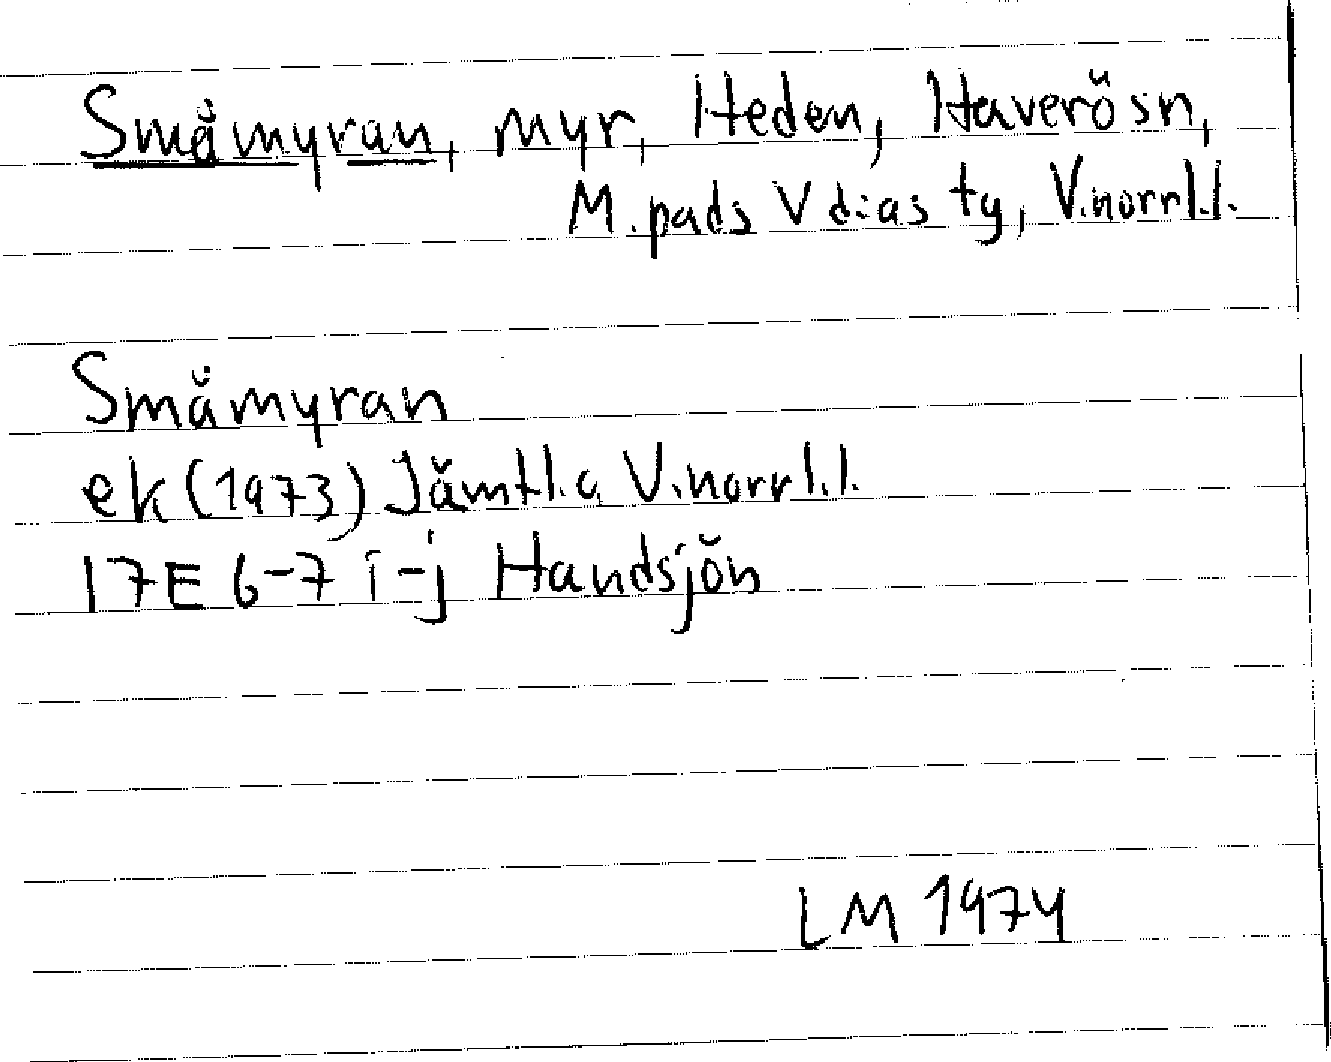 Småmyran, myr, Heden, Haverösn,
M.pads V d:as ty, V.norrl.l.
Småmyran
ek (1973) Jämtl. o V.norrl.l.
17E 6-7 i-j Handsjön
LM 1974